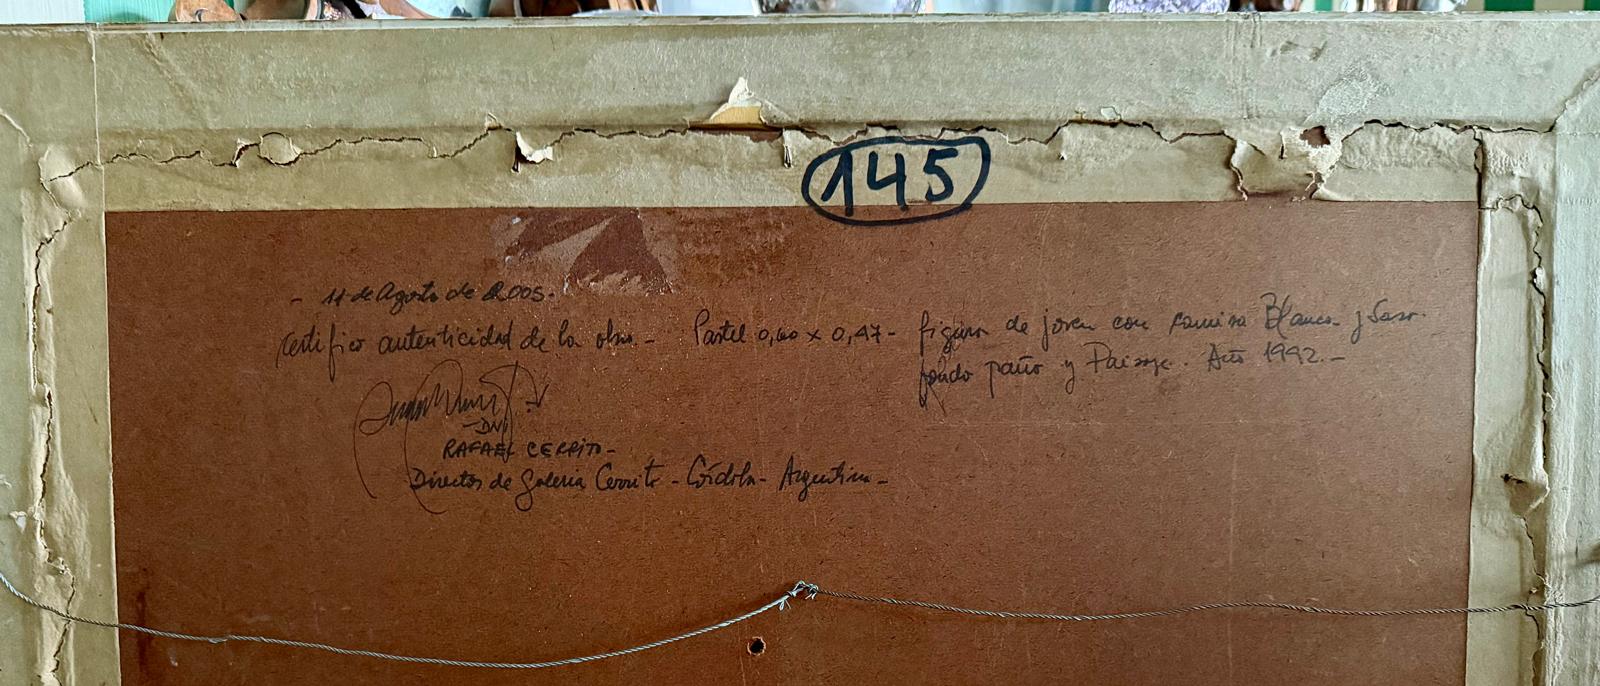 145
- 11 de Agosto de 2005.
Certifico autenticidad de la obra - Pastel 0,60 x 0,47 - figura de joven con camisa Blanca y
fondo paño y Paisaje. Año 1992.-
-DNI
RAFAEL CERRITO-
Director de Galeria Cerrito - Córdoba - Argentina -